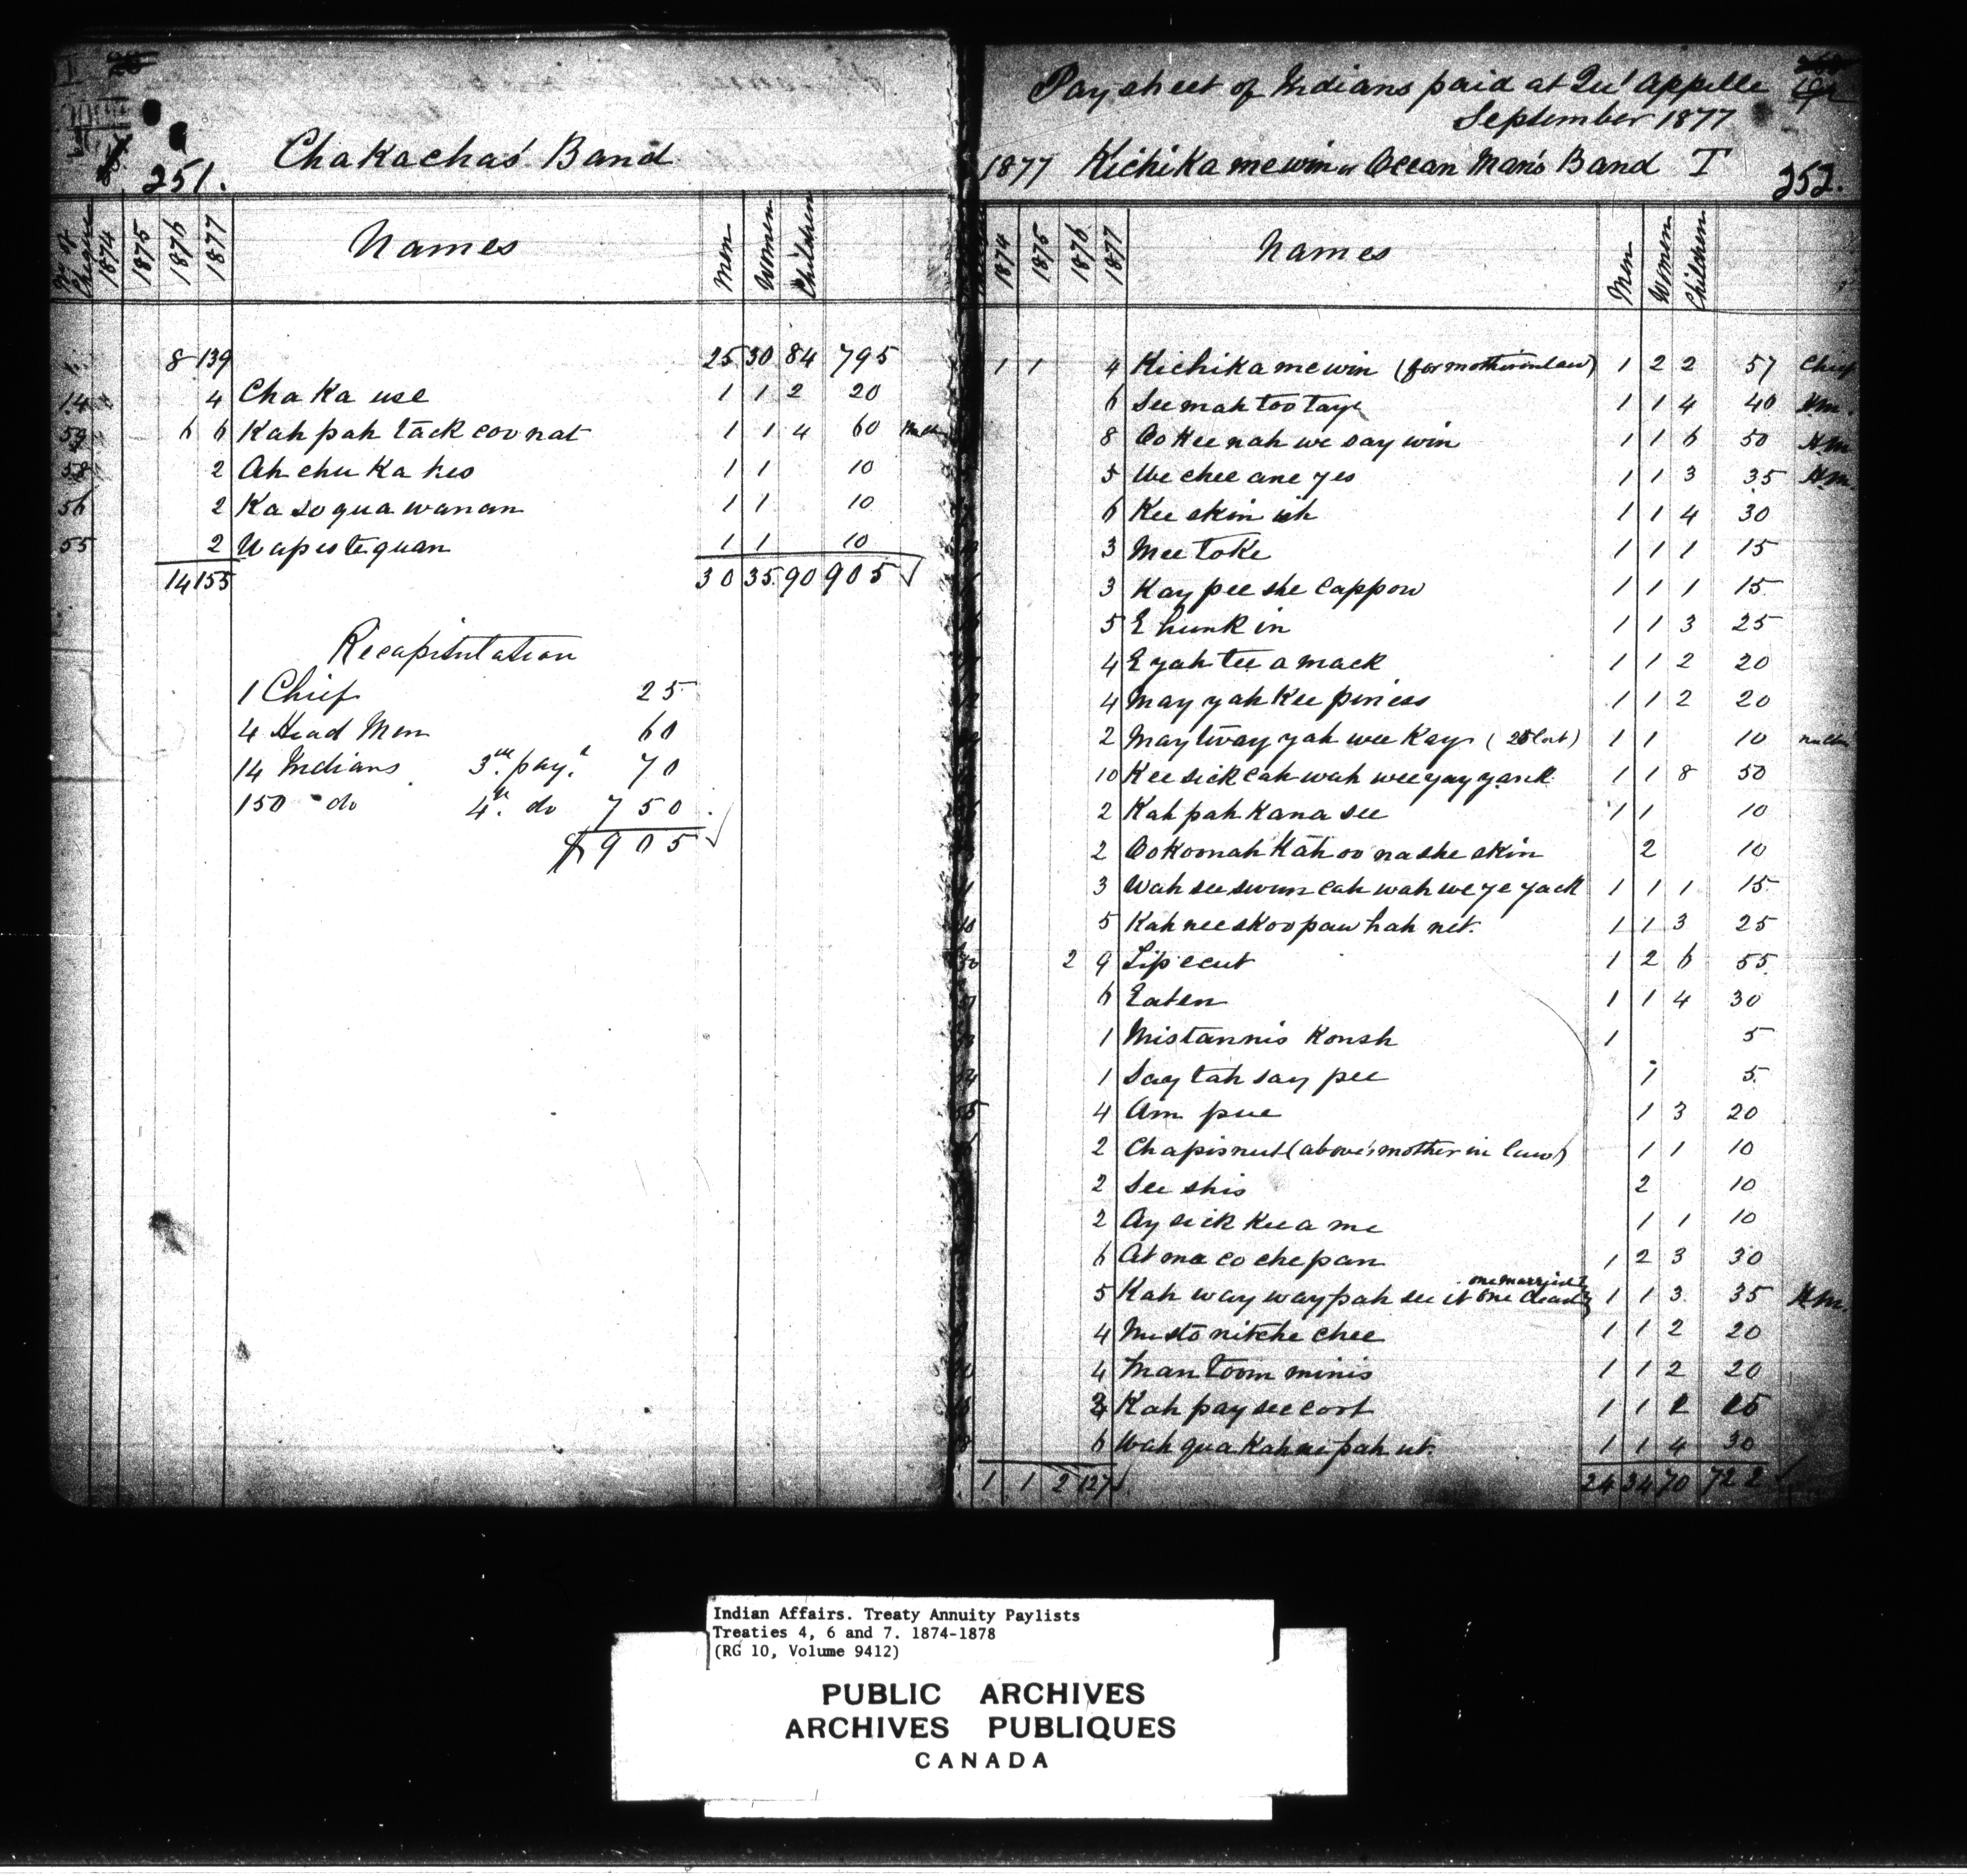 251. Chakachas' Band
No. of Cheque 1874 1875 1876 1877 Names Men Women Children
8 139 25 30 84 795
14 4 Cha Ka use 1 1 2 20
59 6 6 Kah pah tack coo nat 1 1 4 60
58 2 Ah chu Ka kes 1 1 10
56 2 Ka so qua wanan 1 1 10
55 2 Wapistiquan 1 1 10
14 155 30 35 90 905
Recapitulation
1 Chief 25
4 Head Men 60
14 Indians 3rd pay.t 70
150 do 4th do 750
$905
Pay sheet of Indians paid at Qu'Appelle
September 1877
1877 Kichika mewin or Ocean Man's Band T 252.
1874 1875 1876 1877 Names Men Women Children
1 1 4 Kichika mewin (for mother in law) 1 2 2 57 Chief
6 See mah too taye 1 1 4 40 Hm.
8 Oo Kee nah we say win 1 1 6 50 Hm
5 We chee ane yes 1 1 3 35 Hm.
6 Kee skin ish 1 1 4 30
3 Mee toke 1 1 1 15
3 Kay pee she cappow 1 1 1 15
5 E hunk in 1 1 3 25
4 E yah tee a mack 1 1 2 20
4 May yah Kee piness 1 1 2 20
2 May tway yah wee Kay 1 1 10
10 Kee sick cah wah wee yay yank 1 1 8 50
2 Kah pah Kana see 1 1 10
2 Oo Koomah Kah oo nashe skin 2 10
3 Wah see swun cah wah we ye yack 1 1 1 15
5 Kah nee skoo paw hah net. 1 1 3 25
2 9 Lip cut 1 2 6 55
6 Eaten 1 1 4 30
1 Mistannis Konsh 1 5
1 Say tah say pee 1 5
4 Am pue 1 3 20
2 Chapisnut (above's mother in law) 1 1 10
2 See shis 2 10
2 Ay sick Kee a me 1 1 10
6 At ma co chepan 1 2 3 30
5 Kah way way pah see it one married one dead 1 1 3 35 Hm.
4 Misto nitche chee 1 1 2 20
4 Man toom minis 1 1 2 20
Kah pay see coot 1 1
6 Wah qua Kah ne pah ut. 1 1 4 30
1 1 2 127 24 34 70 722
Indian Affairs. Treaty Annuity Paylists
Treaties 4, 6 and 7. 1874-1878
(RG 10, Volume 9412)
PUBLIC ARCHIVES
ARCHIVES PUBLIQUES
CANADA